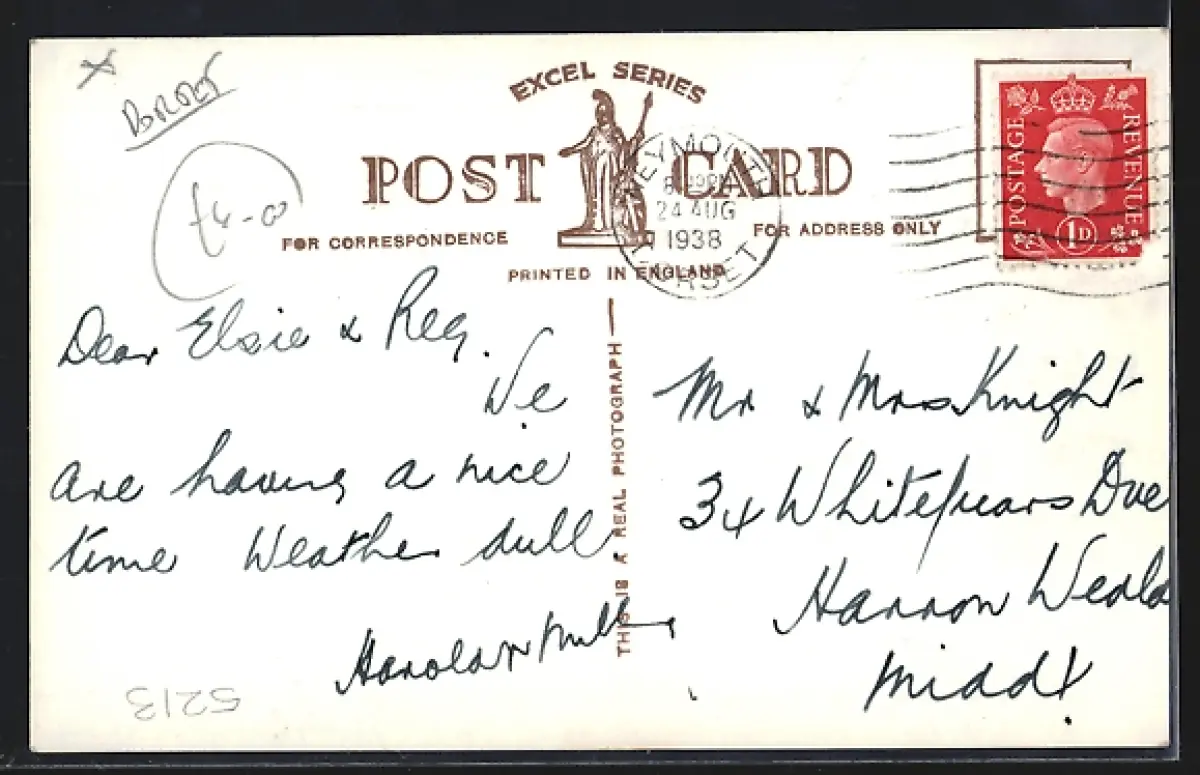 DORSET
£4-0
EXCEL SERIES
POST CARD
FOR CORRESPONDENCE
FOR ADDRESS ONLY
PRINTED IN ENGLAND
THIS IS A REAL PHOTOGRAPH
WEYMOUTH
24 AUG
1938
DORSET
POSTAGE
REVENUE
1D
Dear Elsie & Reg.
We
are having a nice
time Weather dull
Harold &
Mr & Mrs Knight
34 Whitefriars Dve
Harrow Weald
Middx
5213